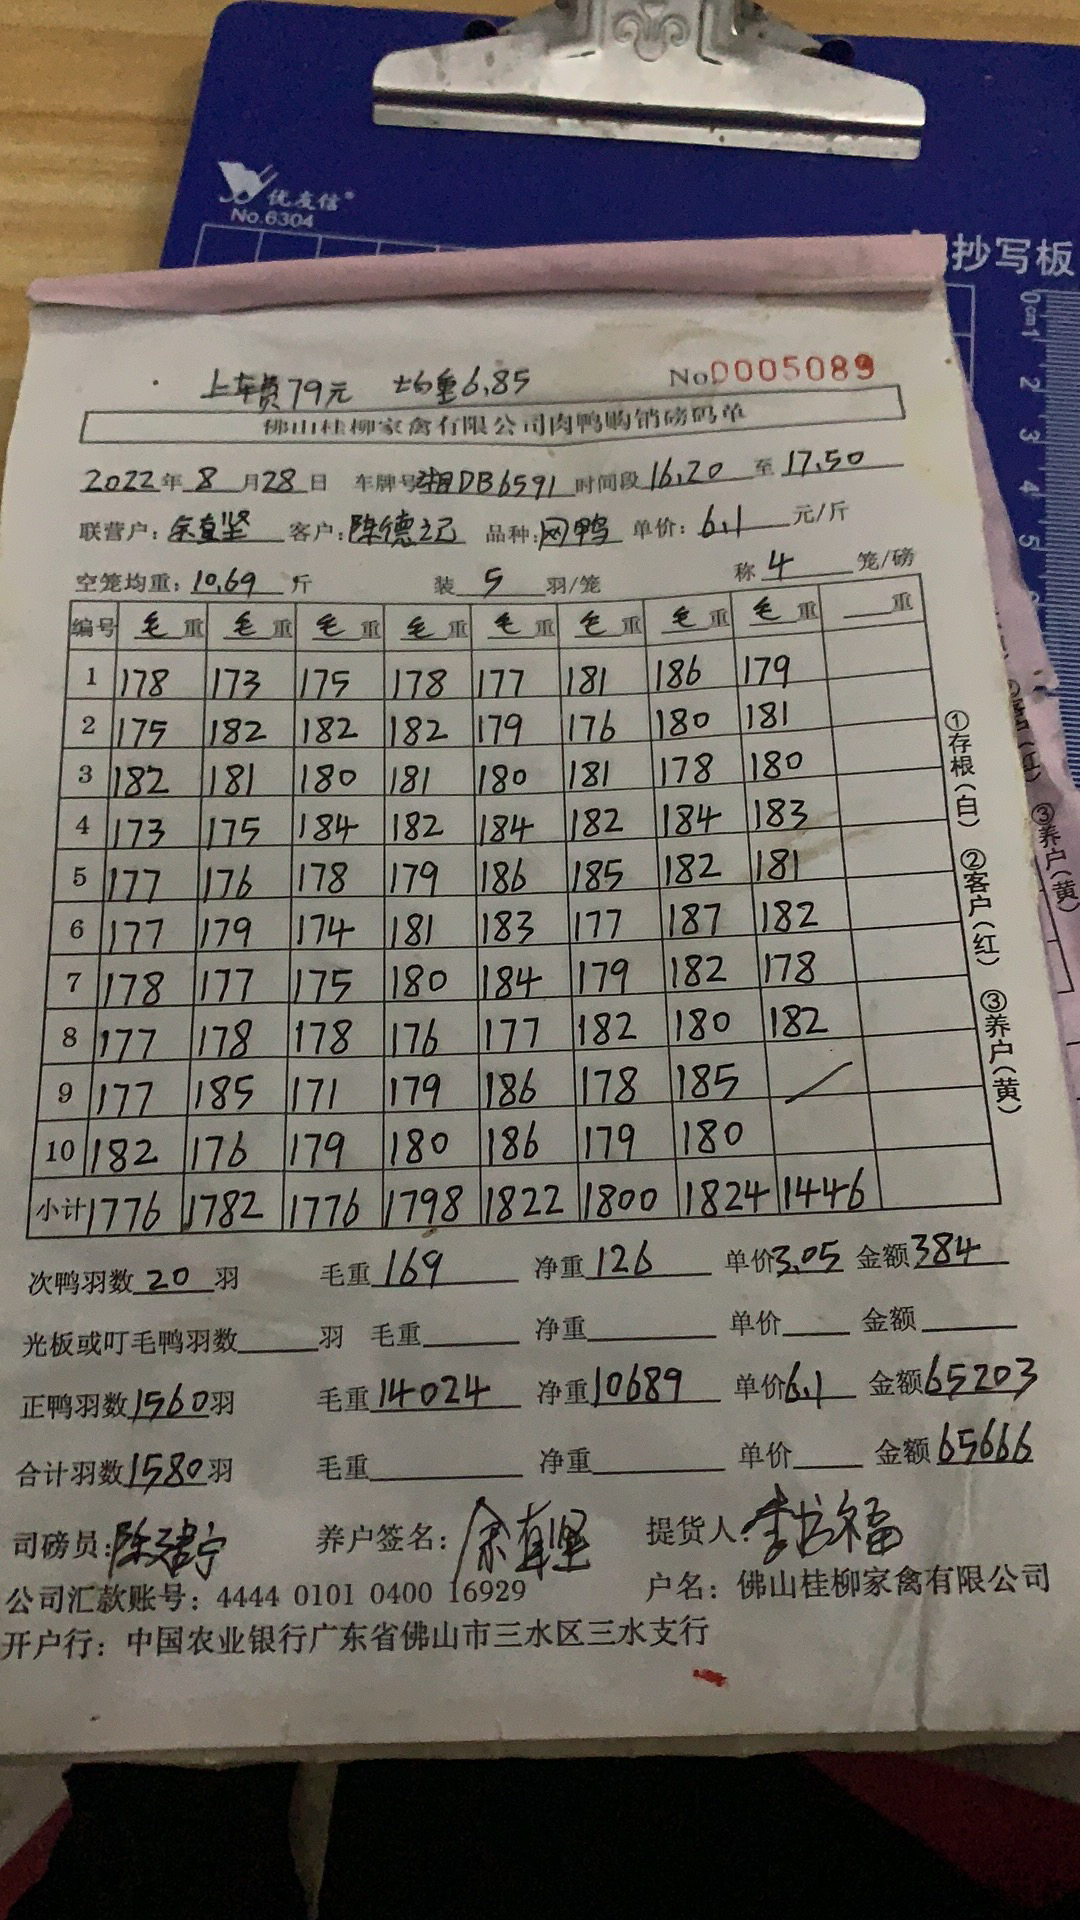 优友信®
No.6304
抄写板
0cm 1 2 3 4 5
上车费79元 均重6.85 No.0005089
佛山桂柳家禽有限公司肉鸭购销磅码单
2022年8月28日 车牌号湘DB6591时间段16.20至17.50
联营户:余直坚 客户:陈德记 品种:网鸭 单价:6.1元/斤
空笼均重:10.69斤 装5羽/笼 称4笼/磅
编号 毛重 毛重 毛重 毛重 毛重 毛重 毛重 毛重 重
1 178 173 175 178 177 181 186 179
2 175 182 182 182 179 176 180 181
3 182 181 180 181 180 181 178 180
4 173 175 184 182 184 182 184 183
5 177 176 178 179 186 185 182 181
6 177 179 174 181 183 177 187 182
7 178 177 175 180 184 179 182 178
8 177 178 178 176 177 182 180 182
9 177 185 171 179 186 178 185
10 182 176 179 180 186 179 180
小计 1776 1782 1776 1798 1822 1800 1824 1446
①存根(白) ②客户(红) ③养户(黄)
③养户(黄)
次鸭羽数20羽 毛重169 净重126 单价3.05 金额384
光板或叮毛鸭羽数 羽 毛重 净重 单价 金额
正鸭羽数1560羽 毛重14024 净重10689 单价6.1 金额65203
合计羽数1580羽 毛重 净重 单价 金额65666
司磅员:陈建宁 养户签名:余直坚 提货人:
公司汇款账号:4444 0101 0400 16929 户名:佛山桂柳家禽有限公司
开户行:中国农业银行广东省佛山市三水区三水支行